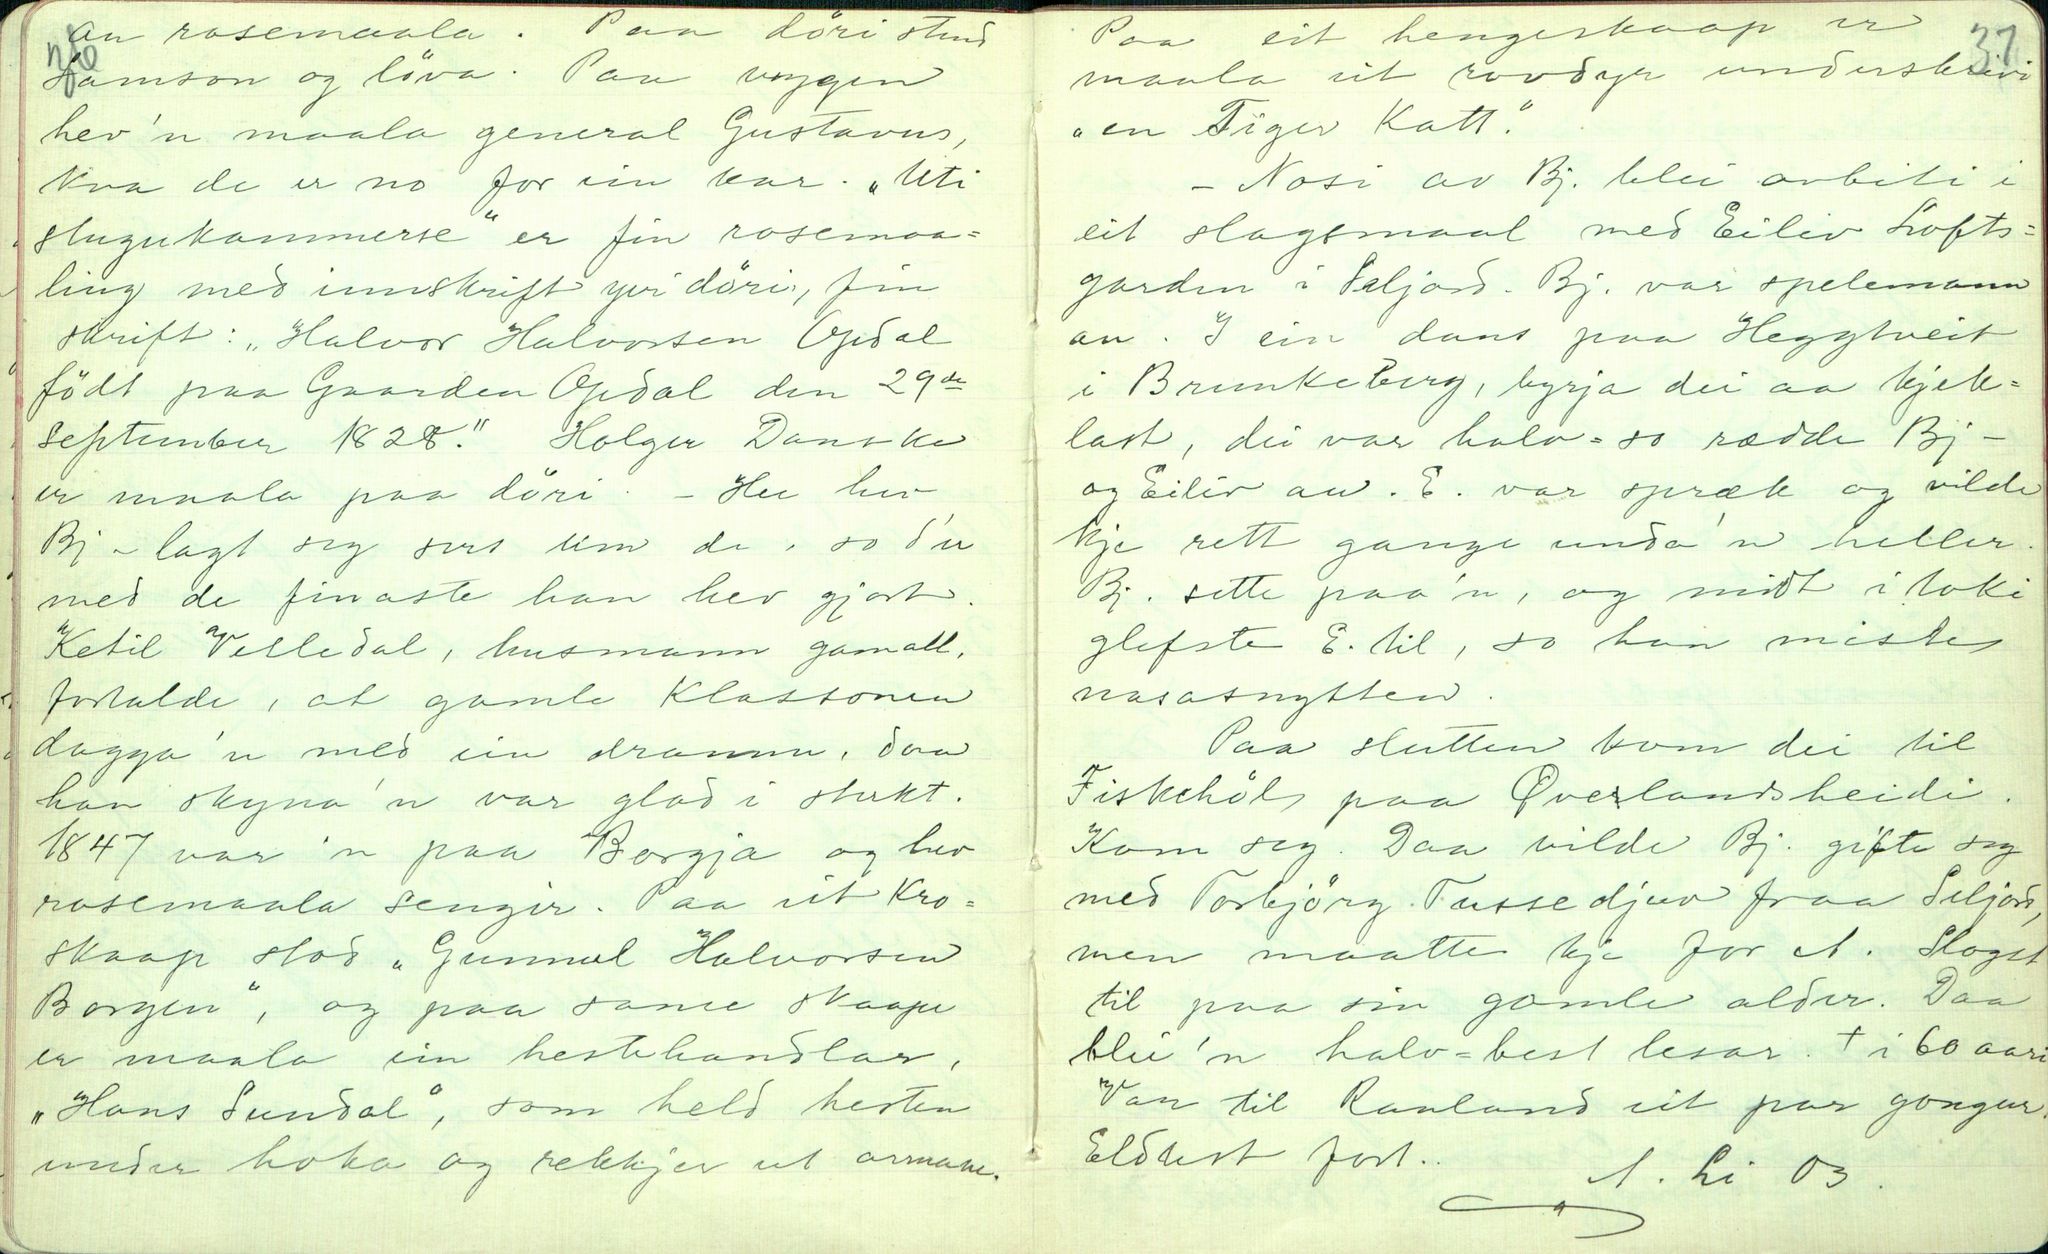 36
au rosemaala. Paa döri stend
Samson og löva. Paa vggen
hev'n maala general Gustavus,
kva de er no for ein kar. „Uti
stugukammerse“ er fin rosemaa=
ling med innskrift yvi döri, fin
skrift: „Halvor Halvorsen Opdal
födt paa Gaarden Opdal den 29de
September 1828.“ Holger Danske
er maala paa döri. – Her hev
Bj – lagt seg sers um de, so d'er
med de finaste han hev gjort.
Ketil Velledal, husmann gamall,
fortalde, at gamle Klassonen
dagga'n med ein dramm, daa
han skyna'n var glad i sterkt.
1847 var'n paa Borgja og hev
rosemaala sengir. Paa eit Kro=
skaap stod „Gunnul Halvorsen
Borgen“, og paa same skaape
er maala ein hestehandlar,
„Hans Sundal“, som held hesten
under hoka og rekkjer ut armane.
37
Paa eit hengeskaap er
maala eit rovdyr underskrivi
„en Tiger Katt.“
– Nosi av Bj. blei avbiti i
eit slagsmaal med Eiliv Lofts=
garden i Seljord. Bj. var spelemann
au. I ein dans paa Heggtveit
i Brunkeberg, byrja dei aa kjek=
last, dei var halv=so rædde Bj –
og Eiliv au. E. var spræk og vilde
kje rett gange unda'n heller.
Bj. sette paa'n, og midt i toki
glefste E. til, so han miste
nasasnytten.
Paa slutten kom dei til
Fiskehöl paa Øverlandsheidi.
Kom seg. Daa vilde Bj. gifte seg
med Torbjörg Tussedjuv fraa Seljord,
men maatte kje for A. Slogst
til paa sin gamle alder. Daa
blei'n halv=best lesar. † i 60 aari
Var til Rauland eit par gongur.
Eldhest fort..
A. Li 03.